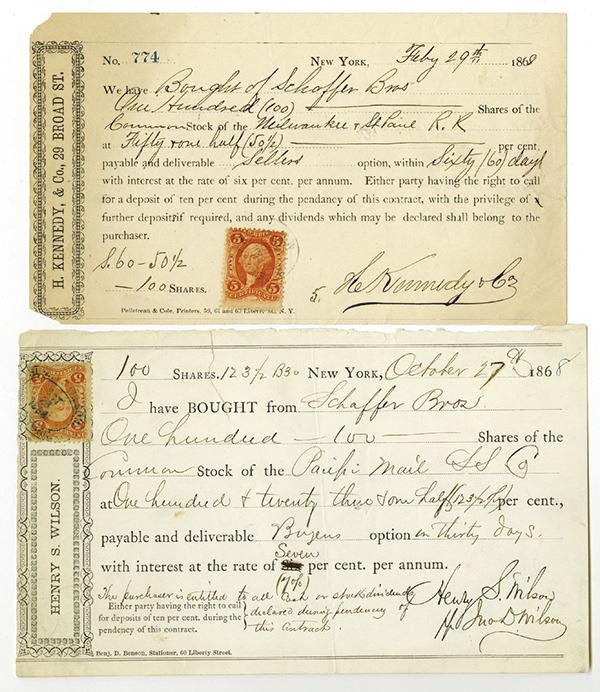 H. KENNEDY, & Co., 29 BROAD ST.
No. 774 NEW YORK, Feby 29th 1868
We have Bought of Schaffer Bros
One Hundred (100) Shares of the
Common Stock of the Milwaukee & St Paul R.R
at Fifty & one half (50½) per cent.
payable and deliverable Sellers option, within Sixty (60) days
with interest at the rate of six per cent. per annum. Either party having the right to call
for a deposit of ten per cent during the pendancy of this contract, with the privilege of
further deposits if required, and any dividends which may be declared shall belong to the
purchaser.
S. 60 - 50½
— 100 SHARES.
5 5
5.
H Kennedy & Co
Pelletreau & Cole, Printers, 59, 61 and 63 Liberty St. N. Y.
HENRY S. WILSON.
100 SHARES. 123½ B30 NEW YORK, October 27th 1868
I have BOUGHT from Schaffer Bros
One hundred — 100 — Shares of the
Common Stock of the Pacific Mail SS Co
at One hundred & twenty three & one half (123½) per cent.,
payable and deliverable Buyers option in thirty days.
Seven
with interest at the rate of six per cent. per annum.
(7%)
The purchaser is entitled to all Cash or stock dividends
declared during pendency of
this contract.
Either party having the right to call
for deposits of ten per cent. during the
pendency of this contract.
Henry S. Wilson
Jno D Wilson
Benj. D. Benson, Stationer, 60 Liberty Street.